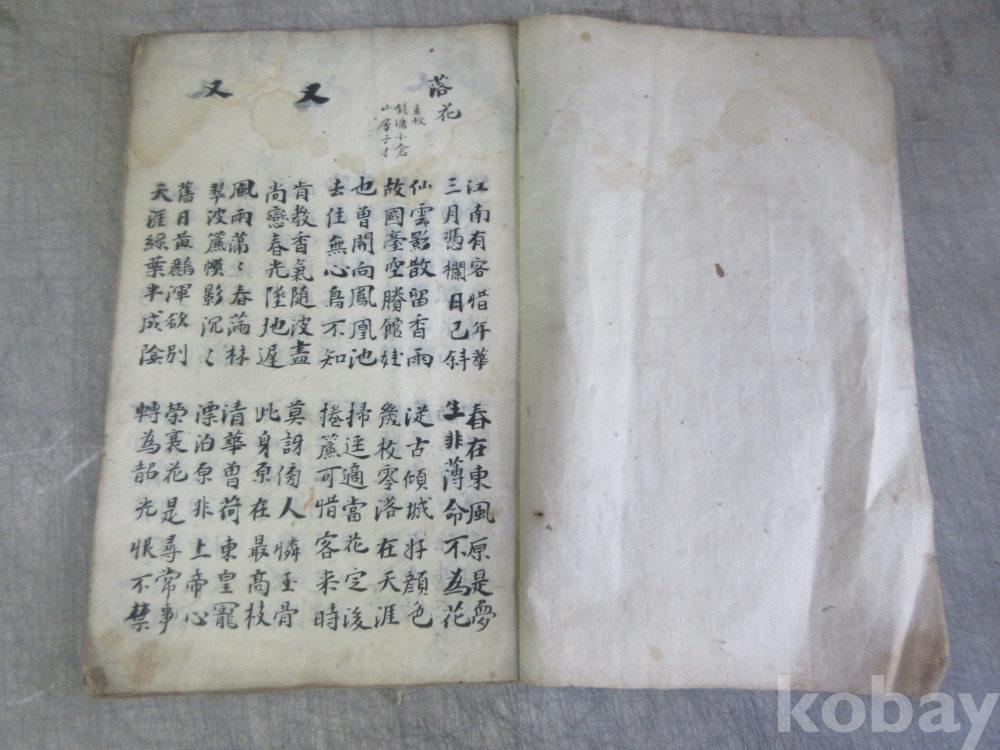 落花
袁枚
錢塘小倉
山房子才
江南有客惜年華
三月憑欄日已斜
春在東風原是夢
生非薄命不為花
仙雲影散留香雨
故國臺空賸館娃
從古傾城好顏色
幾枚零落在天涯
又
也曾開向鳳凰池
去住無心鳥不知
掃逕適當花定後
捲簾可惜客來時
肯教香氣隨波盡
尚戀春光墜地遲
莫訝傍人憐玉骨
此身原在最高枝
又
風雨蕭〻春滿林
翠波簾幙影沉〻
清華曾荷東皇寵
漂泊原非上帝心
舊日黃鸝渾欲別
天涯綠葉半成陰
榮衰花是尋常事
轉為韶光恨不禁
kobay